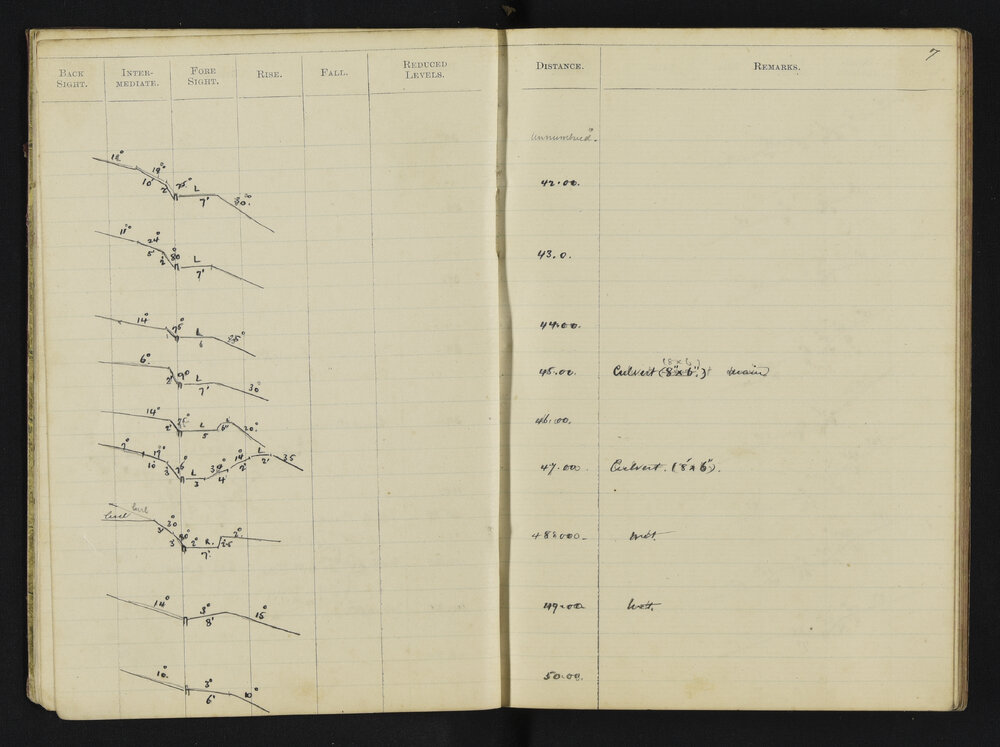 7
BACK SIGHT. INTER-MEDIATE. FORE SIGHT. RISE. FALL. REDUCED LEVELS. DISTANCE. REMARKS.
unnumbered.
12° 19° 10' 2' 75° L 7' 30° 42.00.
11° 24° 5' 2' 80 L 7' 43.0.
14° 75° L 6 25° 44.00.
6° 2' 90 L 7' 30° 45.00. Culvert (8" x 6") (8 x 6) main
14° 2' 75° L 5 20° 46.00.
7° 17° 10' 3' 75° L 3 30° 4' 14° 2' L 2' 35 47.00. Culvert. (8' x 6").
level 30 3' 3' 80° 2° R. 7' 2.5 2° 48.000. wet.
14° 3° 8' 15° 49.00 Wet.
10° 3° 6' 10° 50.00.